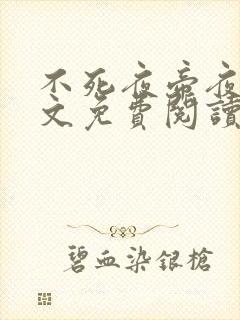 不死夜帝夜
文免費閱讀
碧血染銀槍